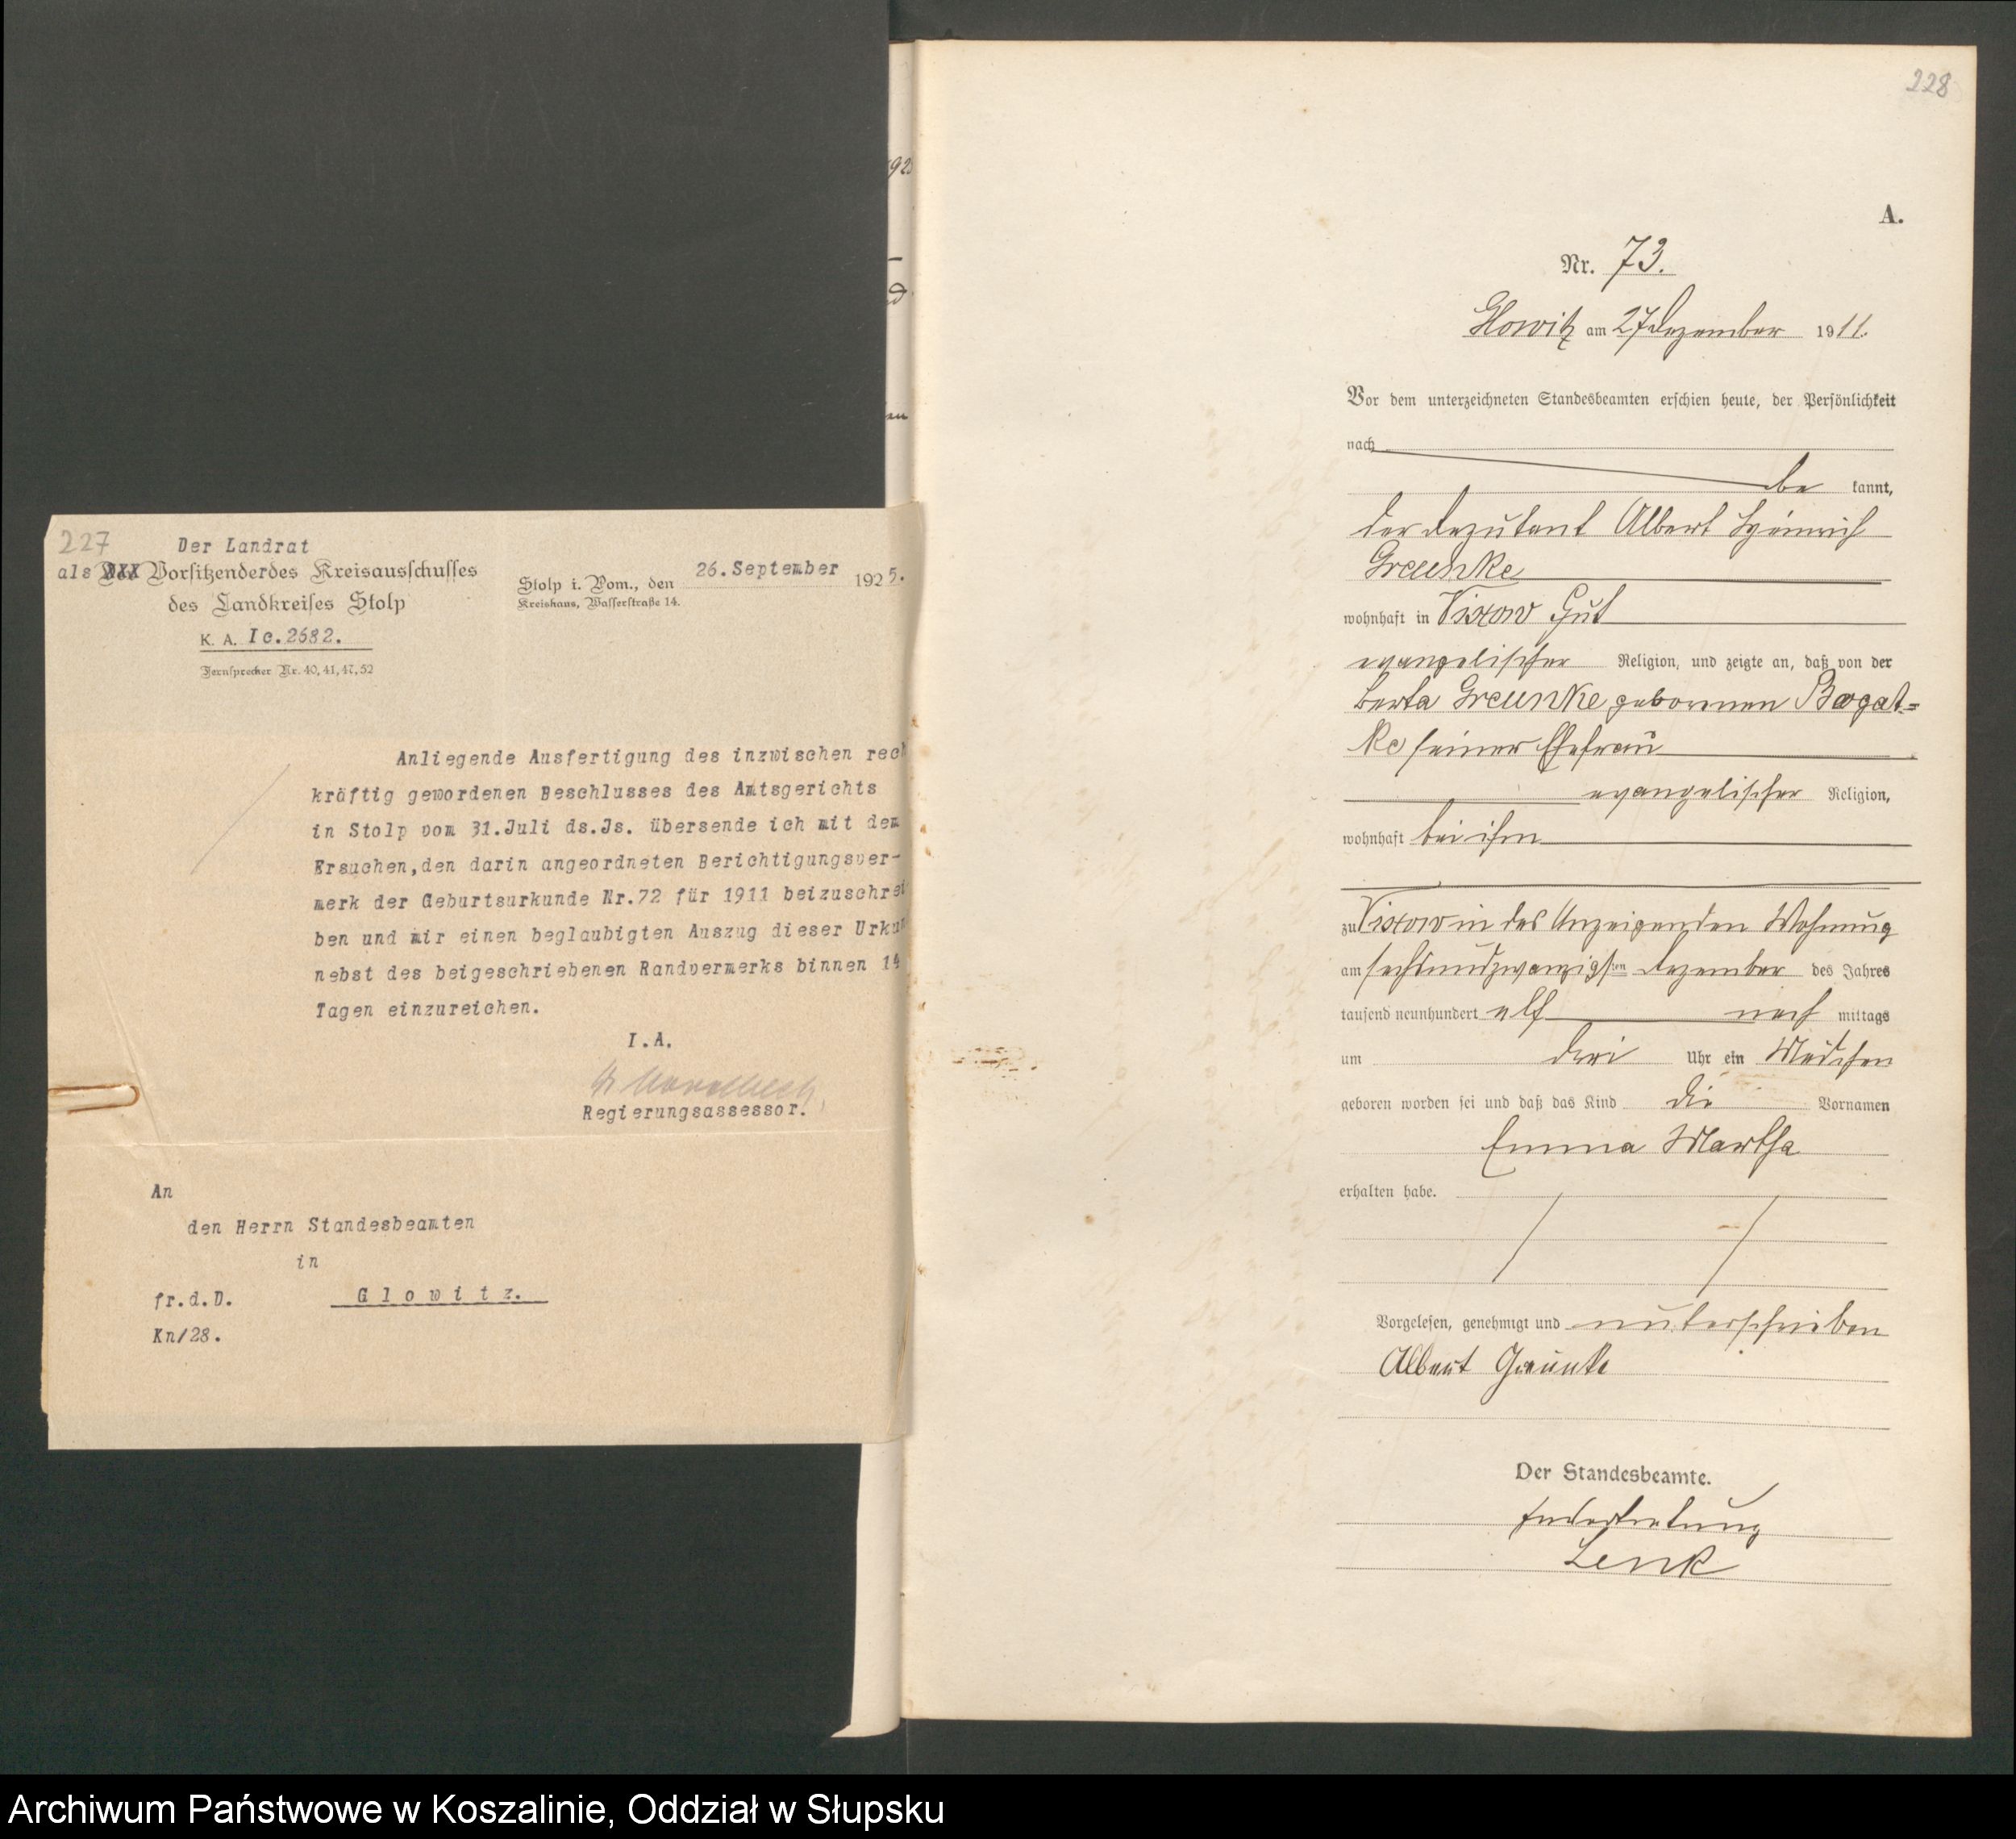 227
Der Landrat
als XXX Vorsitzenderdes Kreisausschusses
des Landkreises Stolp
K. A. Ic.2682.
Fernsprecher Nr. 40, 41, 47, 52
Stolp i. Pom., den 26.September 1925.
Kreishaus, Wasserstraße 14.
Anliegende Ausfertigung des inzwischen rech
kräftig gewordenen Beschlusses des Amtsgerichts
in Stolp vom 31.Juli ds.Js. übersende ich mit dem
Ersuchen,den darin angeordneten Berichtigungsver-
merk der Geburtsurkunde Nr.72 für 1911 beizuschrei
ben und mir einen beglaubigten Auszug dieser Urkun
nebst des beigeschriebenen Randvermerks binnen 14
Tagen einzureichen.
I.A.
Regierungsassessor.
An
den Herrn Standesbeamten
in
fr.d.D. Glowitz.
Kn/28.
228
A.
Nr. 73.
Glowitz am 27 Dezember 1911.
Vor dem unterzeichneten Standesbeamten erschien heute, der Persönlichkeit
nach
be kannt,
der Deputant Albert Heinrich
Greunke
wohnhaft in Vixow Gut
evangelischer Religion, und zeigte an, daß von der
Berta Greunke geborenen Bogat=
ke seiner Ehefrau
evangelischer Religion,
wohnhaft bei ihm
zu Vixow in des Anzeigenden Wohnung
am sechsundzwanzigsten Dezember des Jahres
tausend neunhundert elf nach mittags
um drei Uhr ein Mädchen
geboren worden sei und daß das Kind die Vornamen
Emma Martha
erhalten habe.
Vorgelesen, genehmigt und unterschrieben
Albert Greunke
Der Standesbeamte.
In Vertretung
Lenk
Archiwum Państwowe w Koszalinie, Oddział w Słupsku